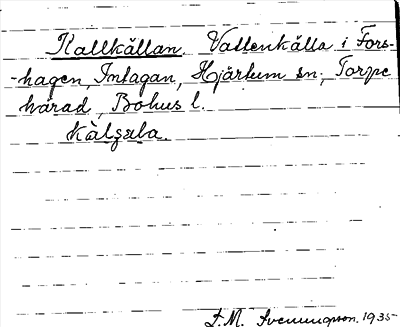 Kallkällan. Vattenkälla i Fors-
-hagen, Intagan, Hjärtum sn; Torpe
härad, Bohus l.
kàlʂɛla.
S.M. Svenungson. 1935